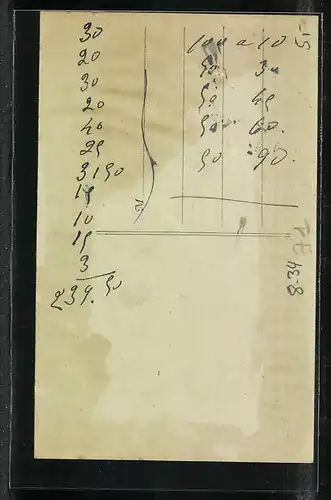 30
20
30
20
40
25
3 150
15
10
15
3
239.50
100 a 10
50 30
50 45
50 60.
50 90.
5,-
8-34